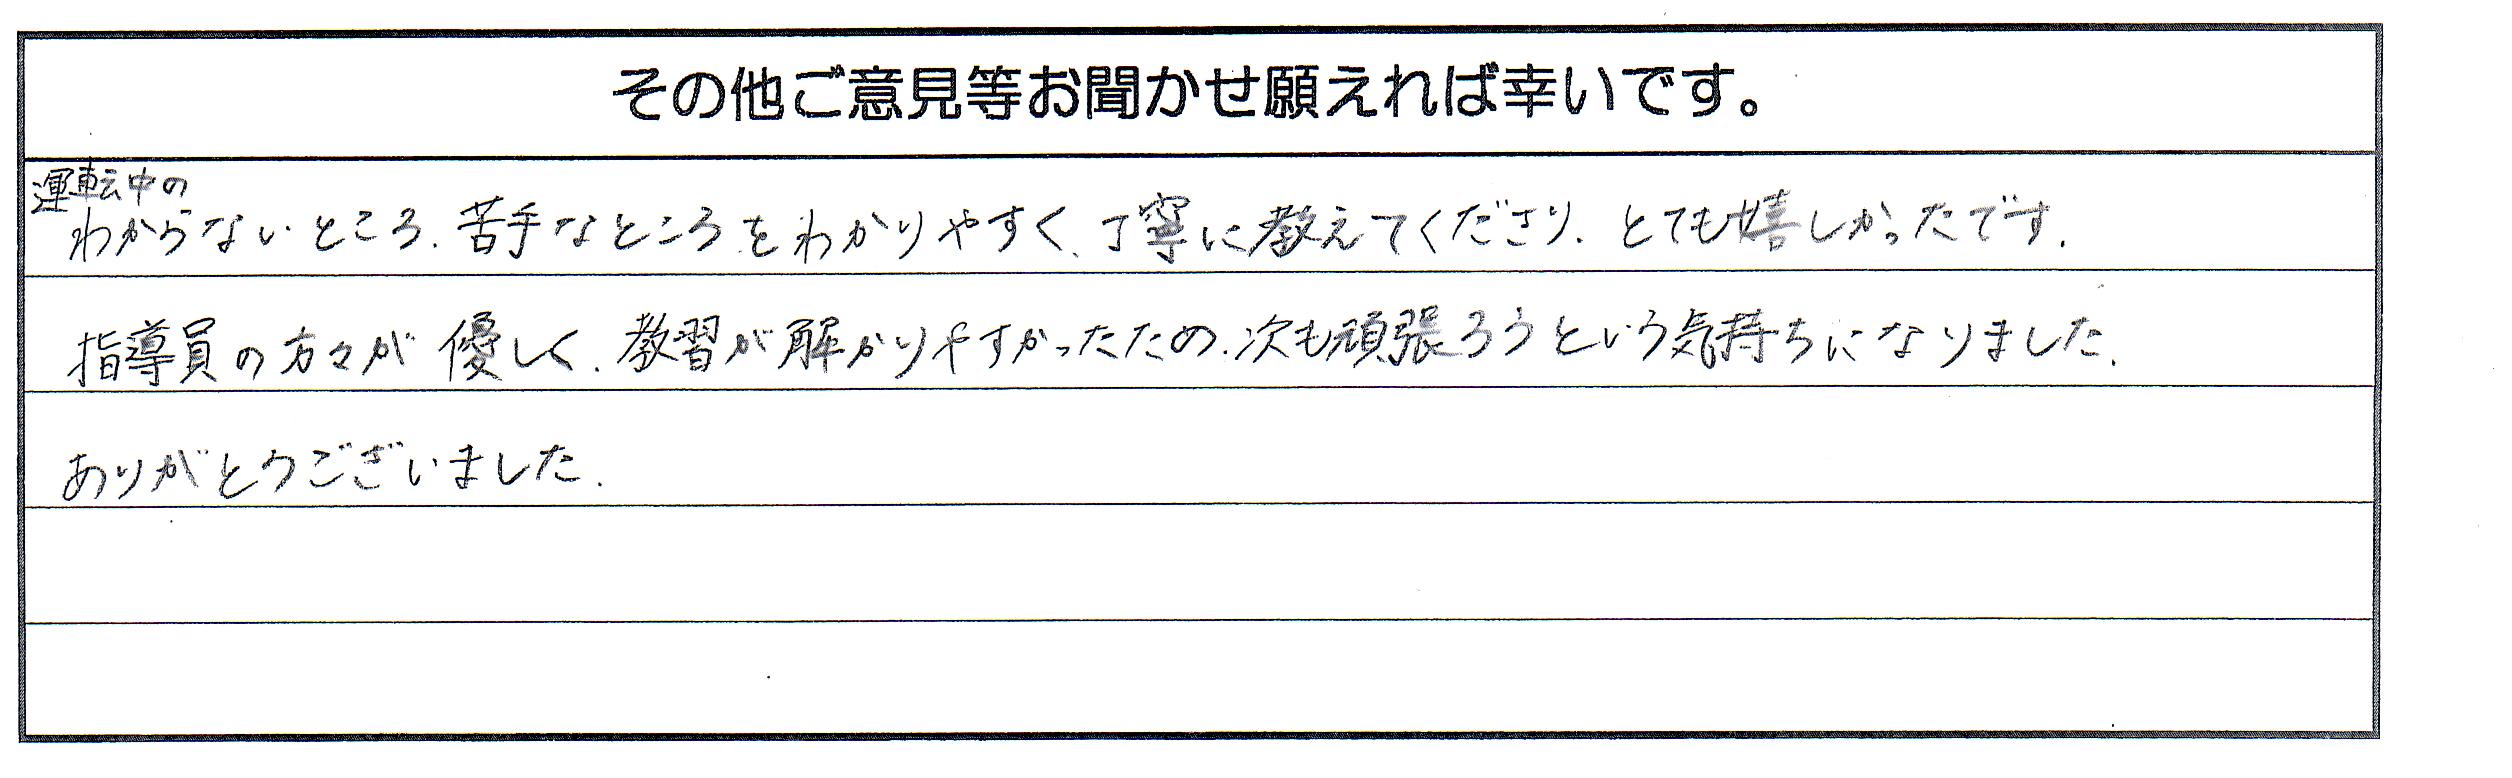 その他ご意見等お聞かせ願えれば幸いです。
運転中の
わからないところ、苦手なところをわかりやすく、丁寧に教えてくださり、とても嬉しかったです。
指導員の方々が優しく、教習が解かりやすかったため、次も頑張ろうという気持ちになりました。
ありがとうございました。